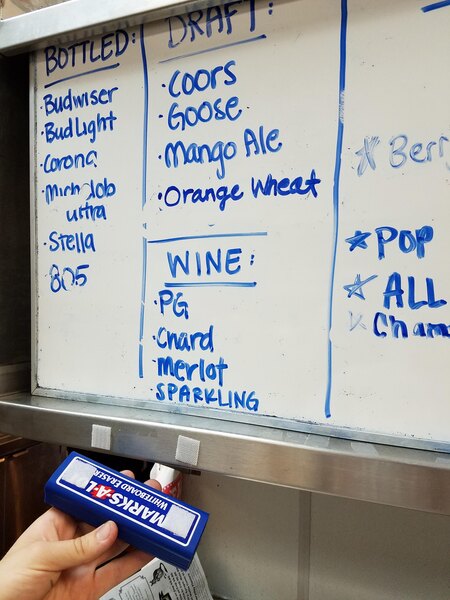 BOTTLED:
·Budwiser
·Bud Light
·Corona
·Michalob
ultra
·Stella
805
DRAFT:
·Coors
·Goose
·Mango Ale
·Orange Wheat
WINE:
·PG
·Chard
·merlot
·SPARKLING
POP
ALL
MARKS-A-L
WHITEBOARD ERASER